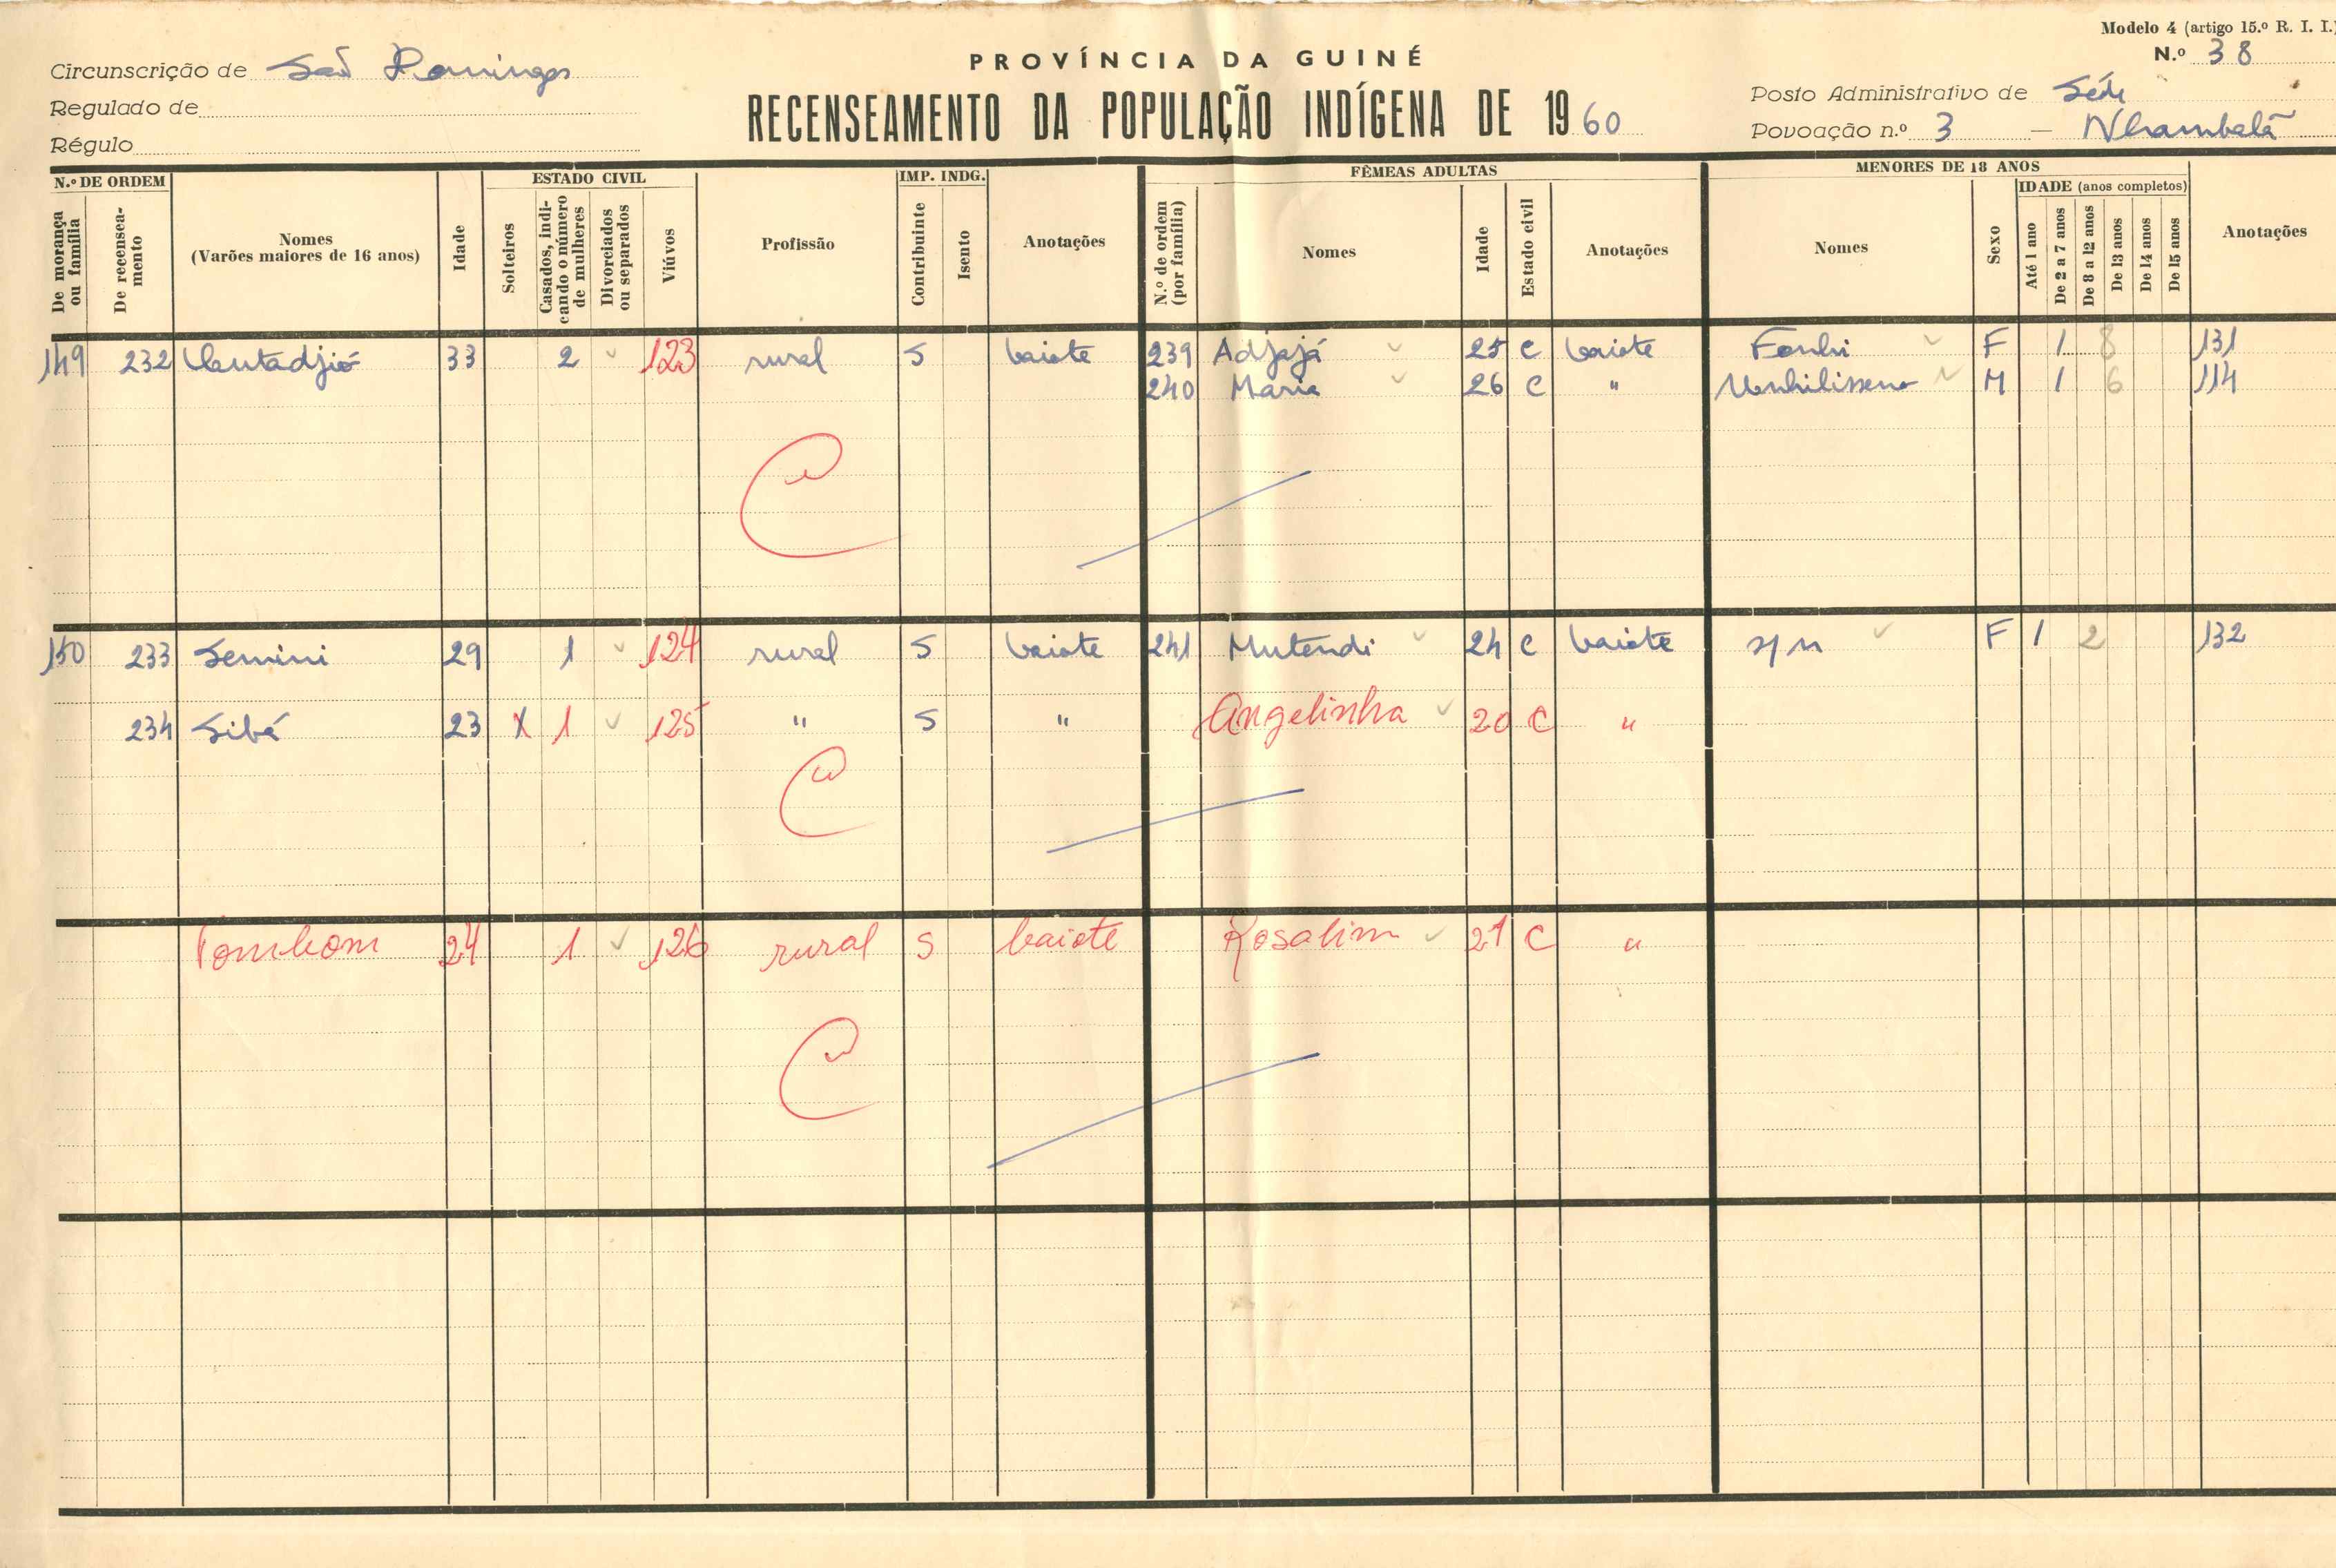 Modelo 4 (artigo 15.º R. I. I.)
N.º 38
PROVÍNCIA DA GUINÉ
RECENSEAMENTO DA POPULAÇÃO INDÍGENA DE 1960
Circunscrição de São Domingos
Regulado de
Régulo
Posto Administrativo de Séde
Povoação n.º 3 — Nhambalã
N.º DE ORDEM
De morança ou família
De recenseamento
Nomes
(Varões maiores de 16 anos)
Idade
ESTADO CIVIL
Solteiros
Casados, indicando o número de mulheres
Divorciados ou separados
Viúvos
Profissão
IMP. INDG.
Contribuinte
Isento
Anotações
FÊMEAS ADULTAS
N.º de ordem (por família)
Nomes
Idade
Estado civil
Anotações
MENORES DE 18 ANOS
Nomes
Sexo
IDADE (anos completos)
Até 1 ano
De 2 a 7 anos
De 8 a 12 anos
De 13 anos
De 14 anos
De 15 anos
Anotações
149 232 33 2 123 rural S baiote 239 Adjajá 25 C baiote Fonhi F 1 8 131
240 Maria 26 C " M 1 6 114
150 233 Semini 29 1 124 rural S baiote 241 Mutendi 24 C baiote s/n F 1 2 132
234 Sibá 23 X 1 125 " S " Angelinha 20 C "
24 1 126 rural S baiote Rosalim 21 C "